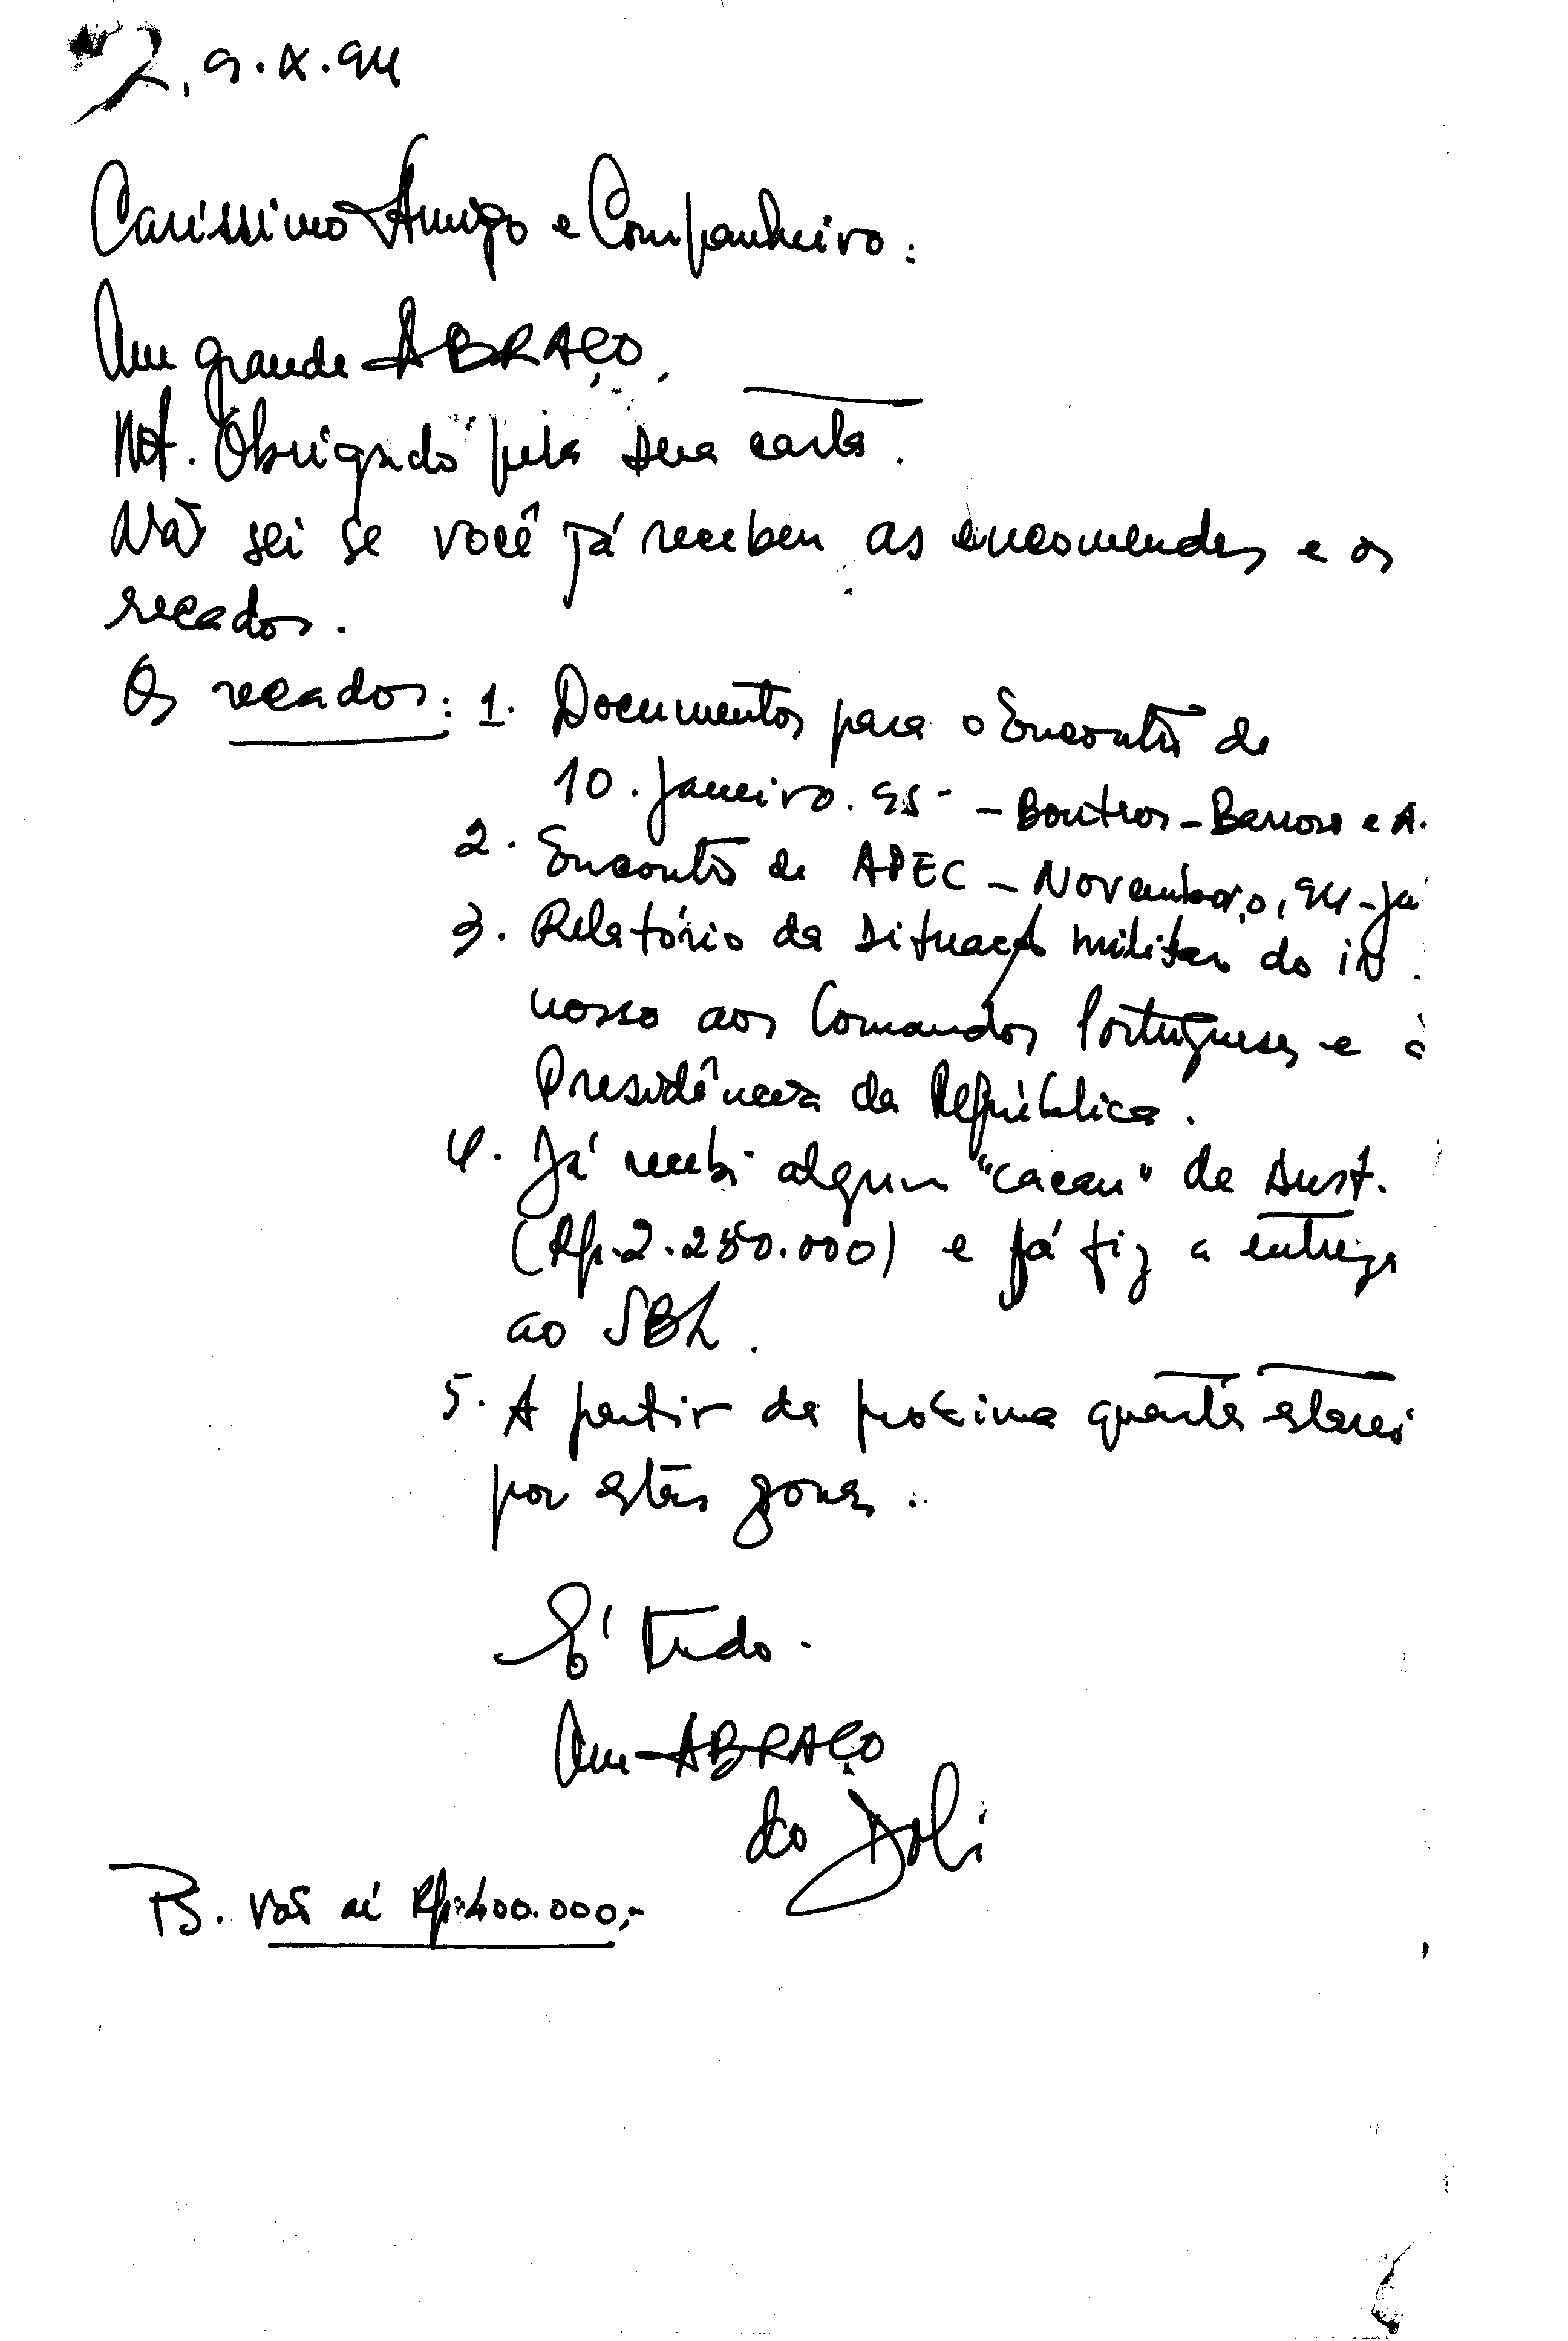 2, 9.X.94
Caríssimo Amigo e Companheiro:
Um grande ABRAÇO,
Mt. Obrigado pela sua carta.
Não sei se você já recebeu as encomendas e os
recados.
Os recados: 1. Documentos para o Encontro de
10. Janeiro. 95 - Boutros - Barroso e A.
2. Encontro de APEC - Novembro, 94 - Já
3. Relatório da situação militar do
nosso aos Comandos Portugueses e à
Presidência da República.
4. Já recebi algum "cacau" de Aust.
(Rp. 2.250.000) e já fiz a entrega
ao SBL.
5. A partir da próxima quarta estarei
por estas zonas.
É tudo.
Um ABRAÇO
do
PS. Vão aí Rp. 400.000,-